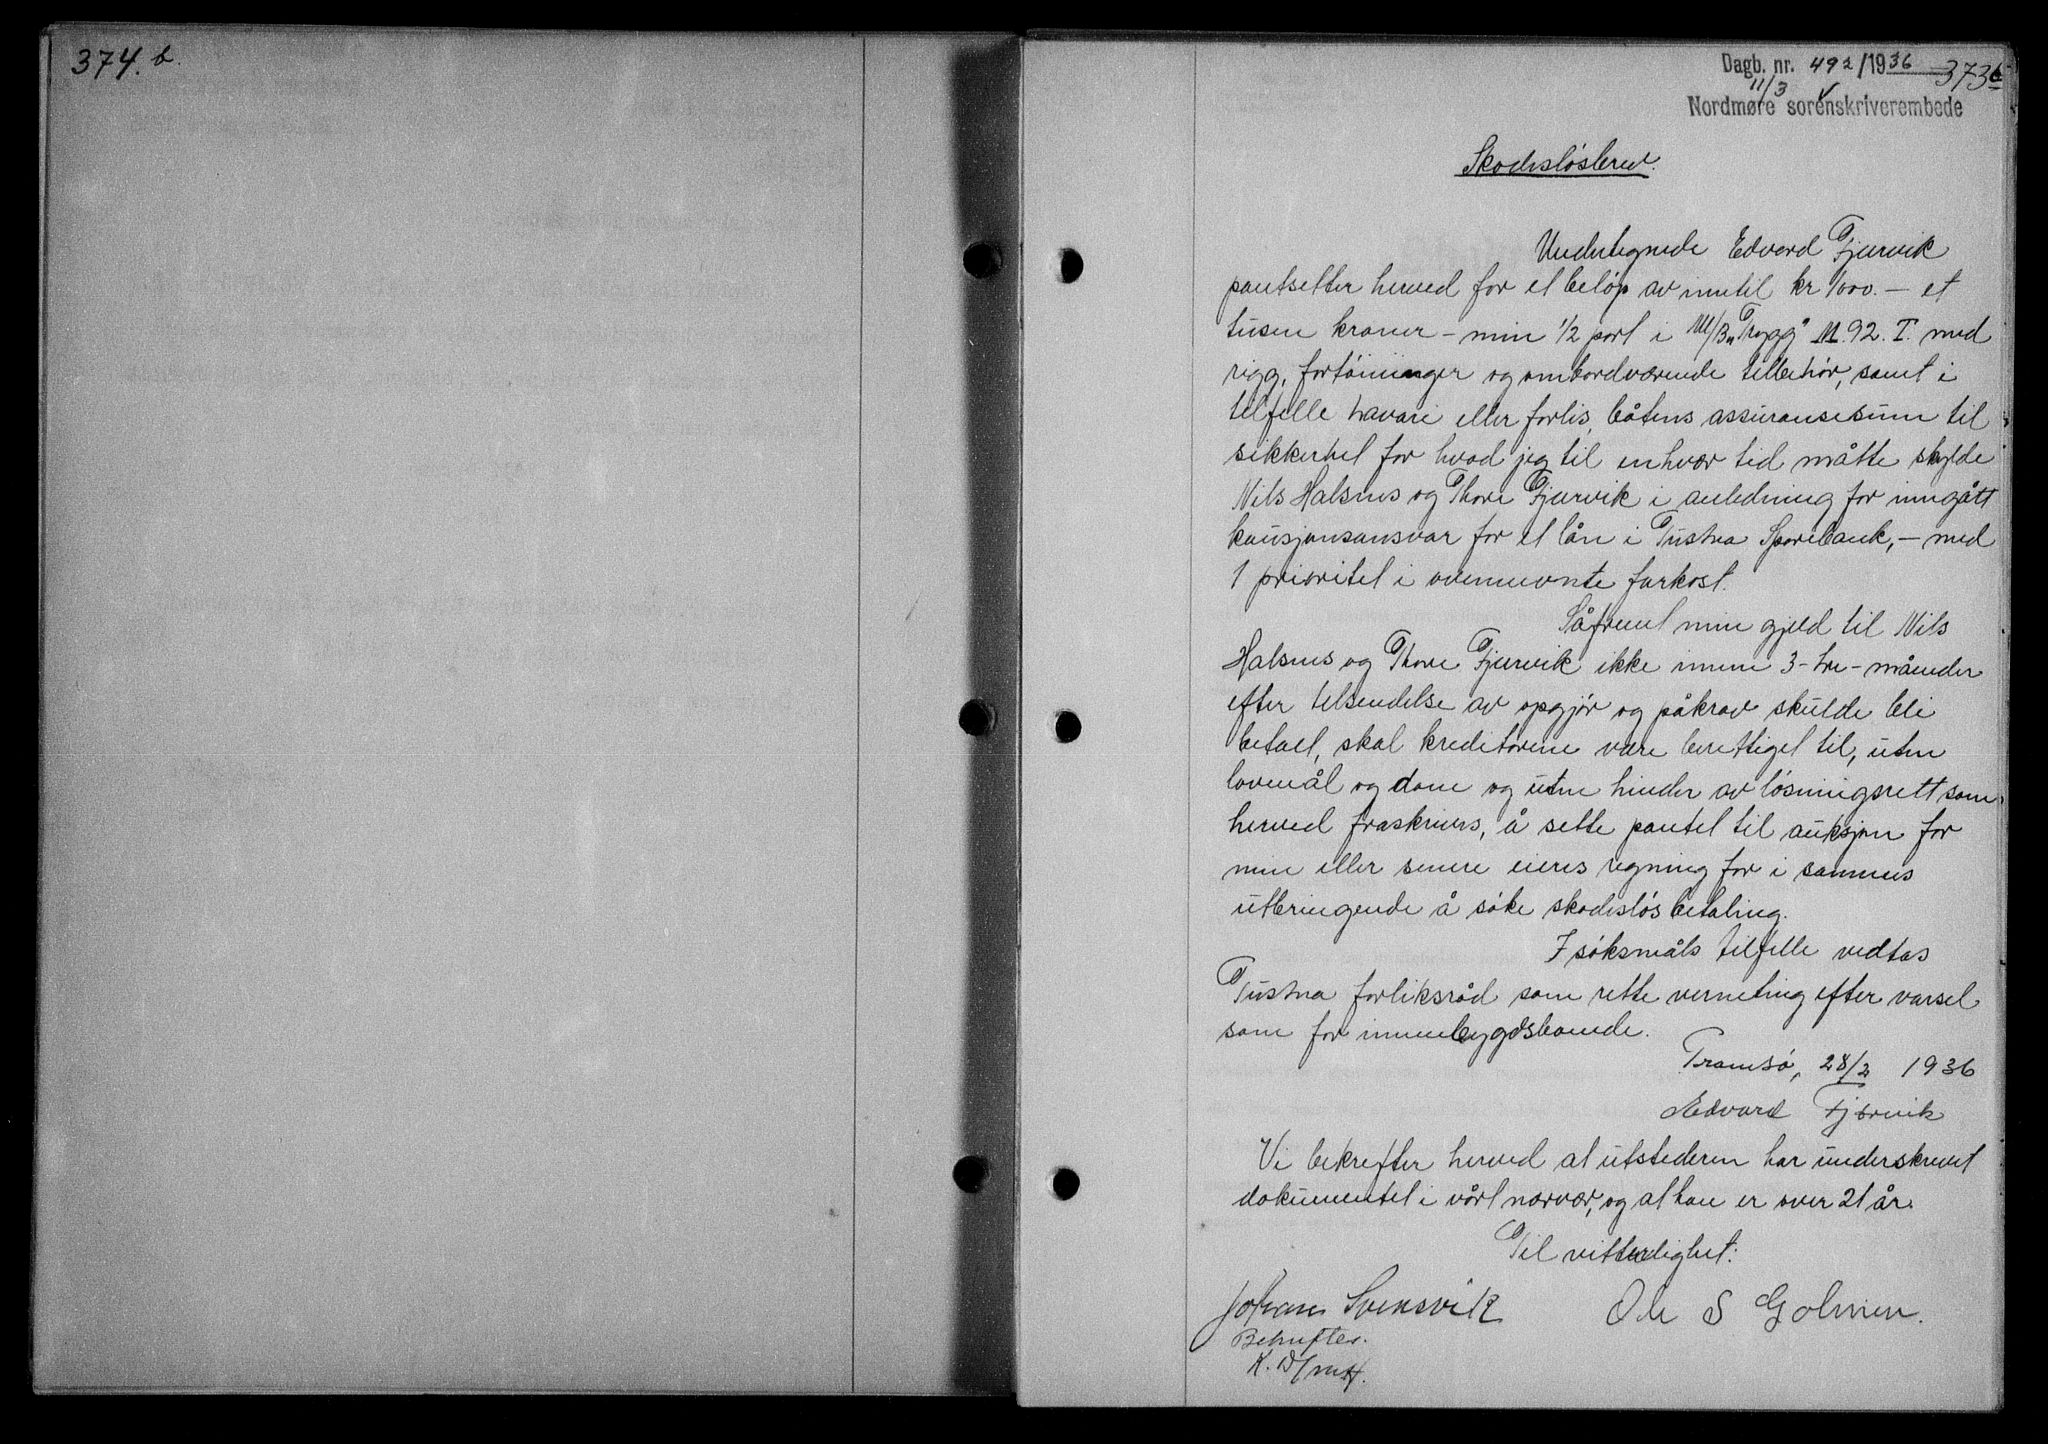 374.b.
Dagb. nr. 492/1936 373b
11/3
Nordmøre sorenskriverembede
Skadesløsbrev.
Undertegnede Edvard Fjærvik
pantsetter herved for et beløp av inntil kr 1000.- et
tusen kroner - min 1/2 part i M/B "Trygg" M.92.T. med
rigg, fortøininger og ombordværende tilbehør, samt i
tilfelle havari eller forlis, båtens assuransesum til
sikkerhet for hvad jeg til enhver tid måtte skylde
Nils Halsnes og Thore Fjærvik i anledning for inngått
kausjonsansvar for et lån i Tustna Sparebank, - med
1 prioritet i ovennevnte farkost.
Såfremt min gjeld til Nils
Halsnes og Thore Fjærvik ikke innen 3-tre-måneder
efter tilsendelse av opgjør og påkrav skulde bli
betalt, skal kreditorene være berettiget til, uten
lovmål og dom og uten hinder av løsningsrett som
herved fraskrives, å sette pantet til auksjon for
min eller senere eieres regning for i sammes
utbringende å søke skadesløs betaling.
I søksmåls tilfelle vedtas
Tustna forliksråd som rette verneting efter varsel
som for innenbygdsboende.
Tromsø, 28/2 1936
Edvard Fjærvik
Vi bekrefter herved at utstederen har underskrevet
dokumentet i vårt nærvær, og at han er over 21 år.
Til vitterlighet:
Johan Svensvik Ole S Golmen.
Bekreftes.